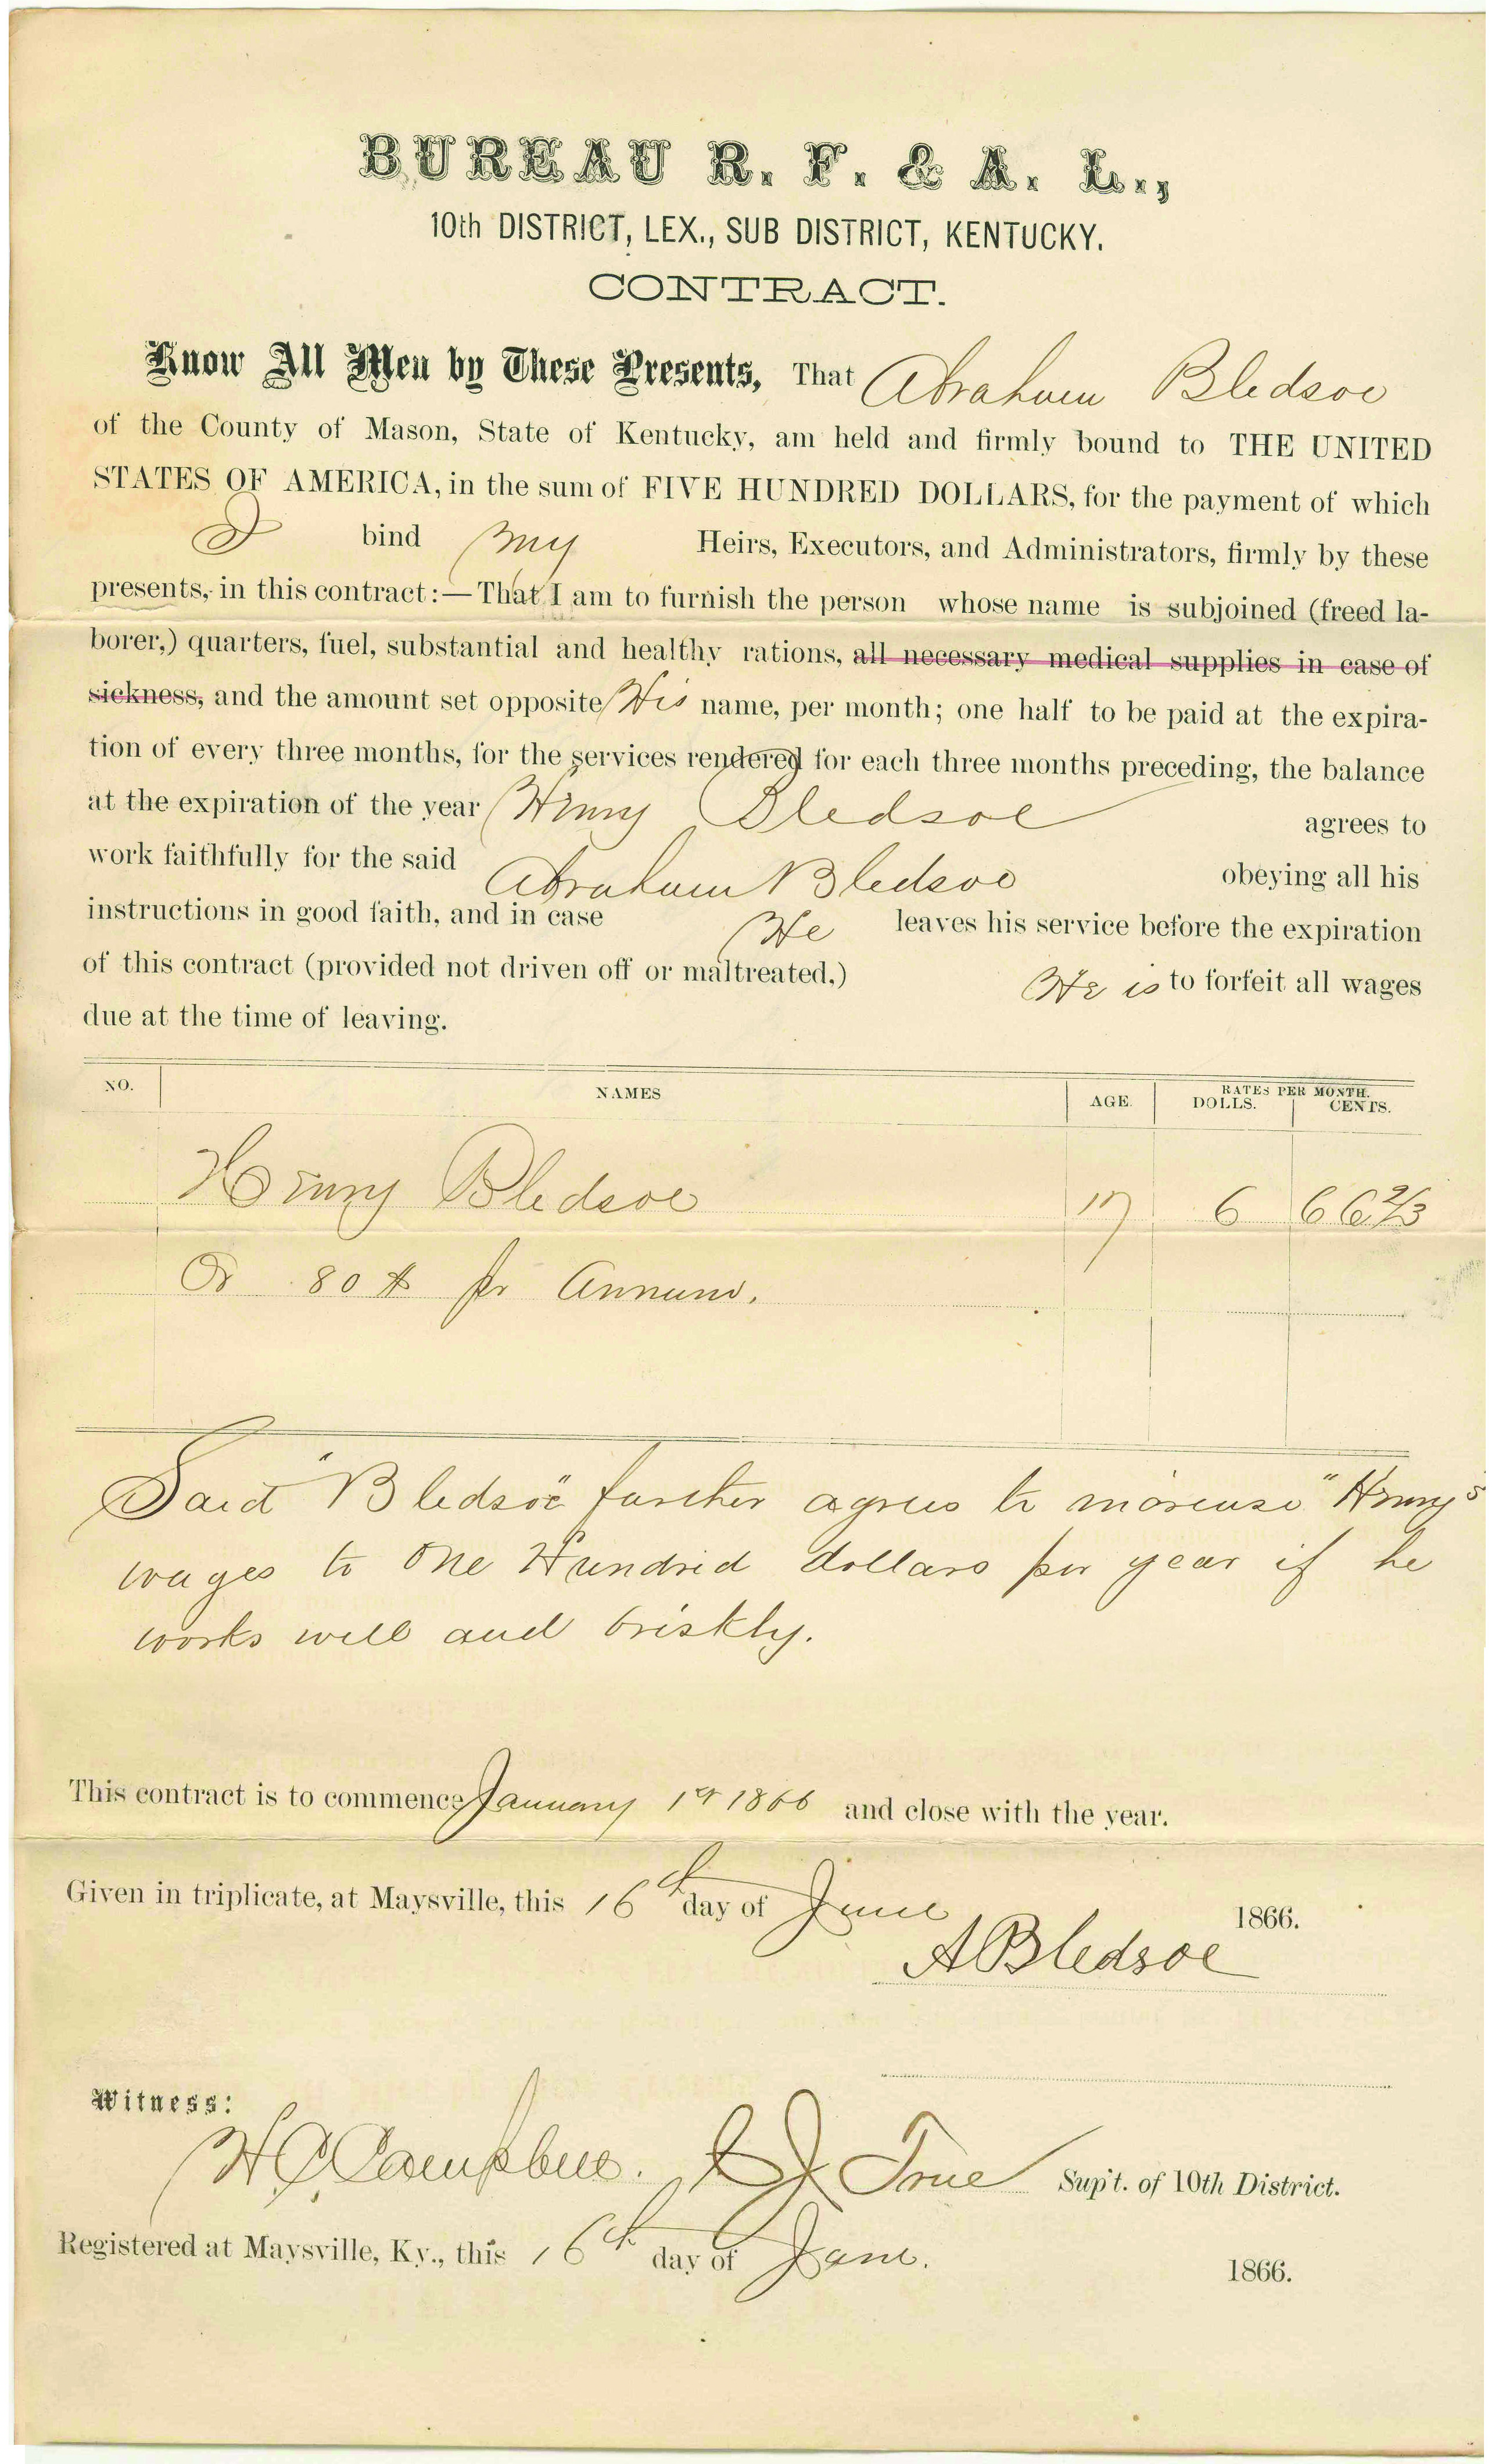 BUREAU R. F. & A. L.,
10th DISTRICT, LEX., SUB DISTRICT, KENTUCKY.
CONTRACT.
Know All Men by These Presents, That Abraham Bledsoe
of the County of Mason, State of Kentucky, am held and firmly bound to THE UNITED
STATES OF AMERICA, in the sum of FIVE HUNDRED DOLLARS, for the payment of which
I bind my Heirs, Executors, and Administrators, firmly by these
presents, in this contract:—That I am to furnish the person whose name is subjoined (freed la-
borer,) quarters, fuel, substantial and healthy rations, all necessary medical supplies in case of
sickness, and the amount set opposite His name, per month; one half to be paid at the expira-
tion of every three months, for the services rendered for each three months preceding, the balance
at the expiration of the year Henry Bledsoe agrees to
work faithfully for the said Abraham Bledsoe obeying all his
instructions in good faith, and in case He leaves his service before the expiration
of this contract (provided not driven off or maltreated,) He is to forfeit all wages
due at the time of leaving.
NO. NAMES AGE. RATES PER MONTH.
DOLLS. CENTS.
Henry Bledsoe 17 6 66 2/3
Or 80 $ pr Annum.
Said "Bledsoe" further agrees to increase "Henry's
wages to One Hundred dollars per year if he
works well and briskly.
This contract is to commence January 1st 1866 and close with the year.
Given in triplicate, at Maysville, this 16th day of June 1866.
A Bledsoe
Witness:
Campbell. True Sup't. of 10th District.
Registered at Maysville, Ky., this 16th day of June. 1866.